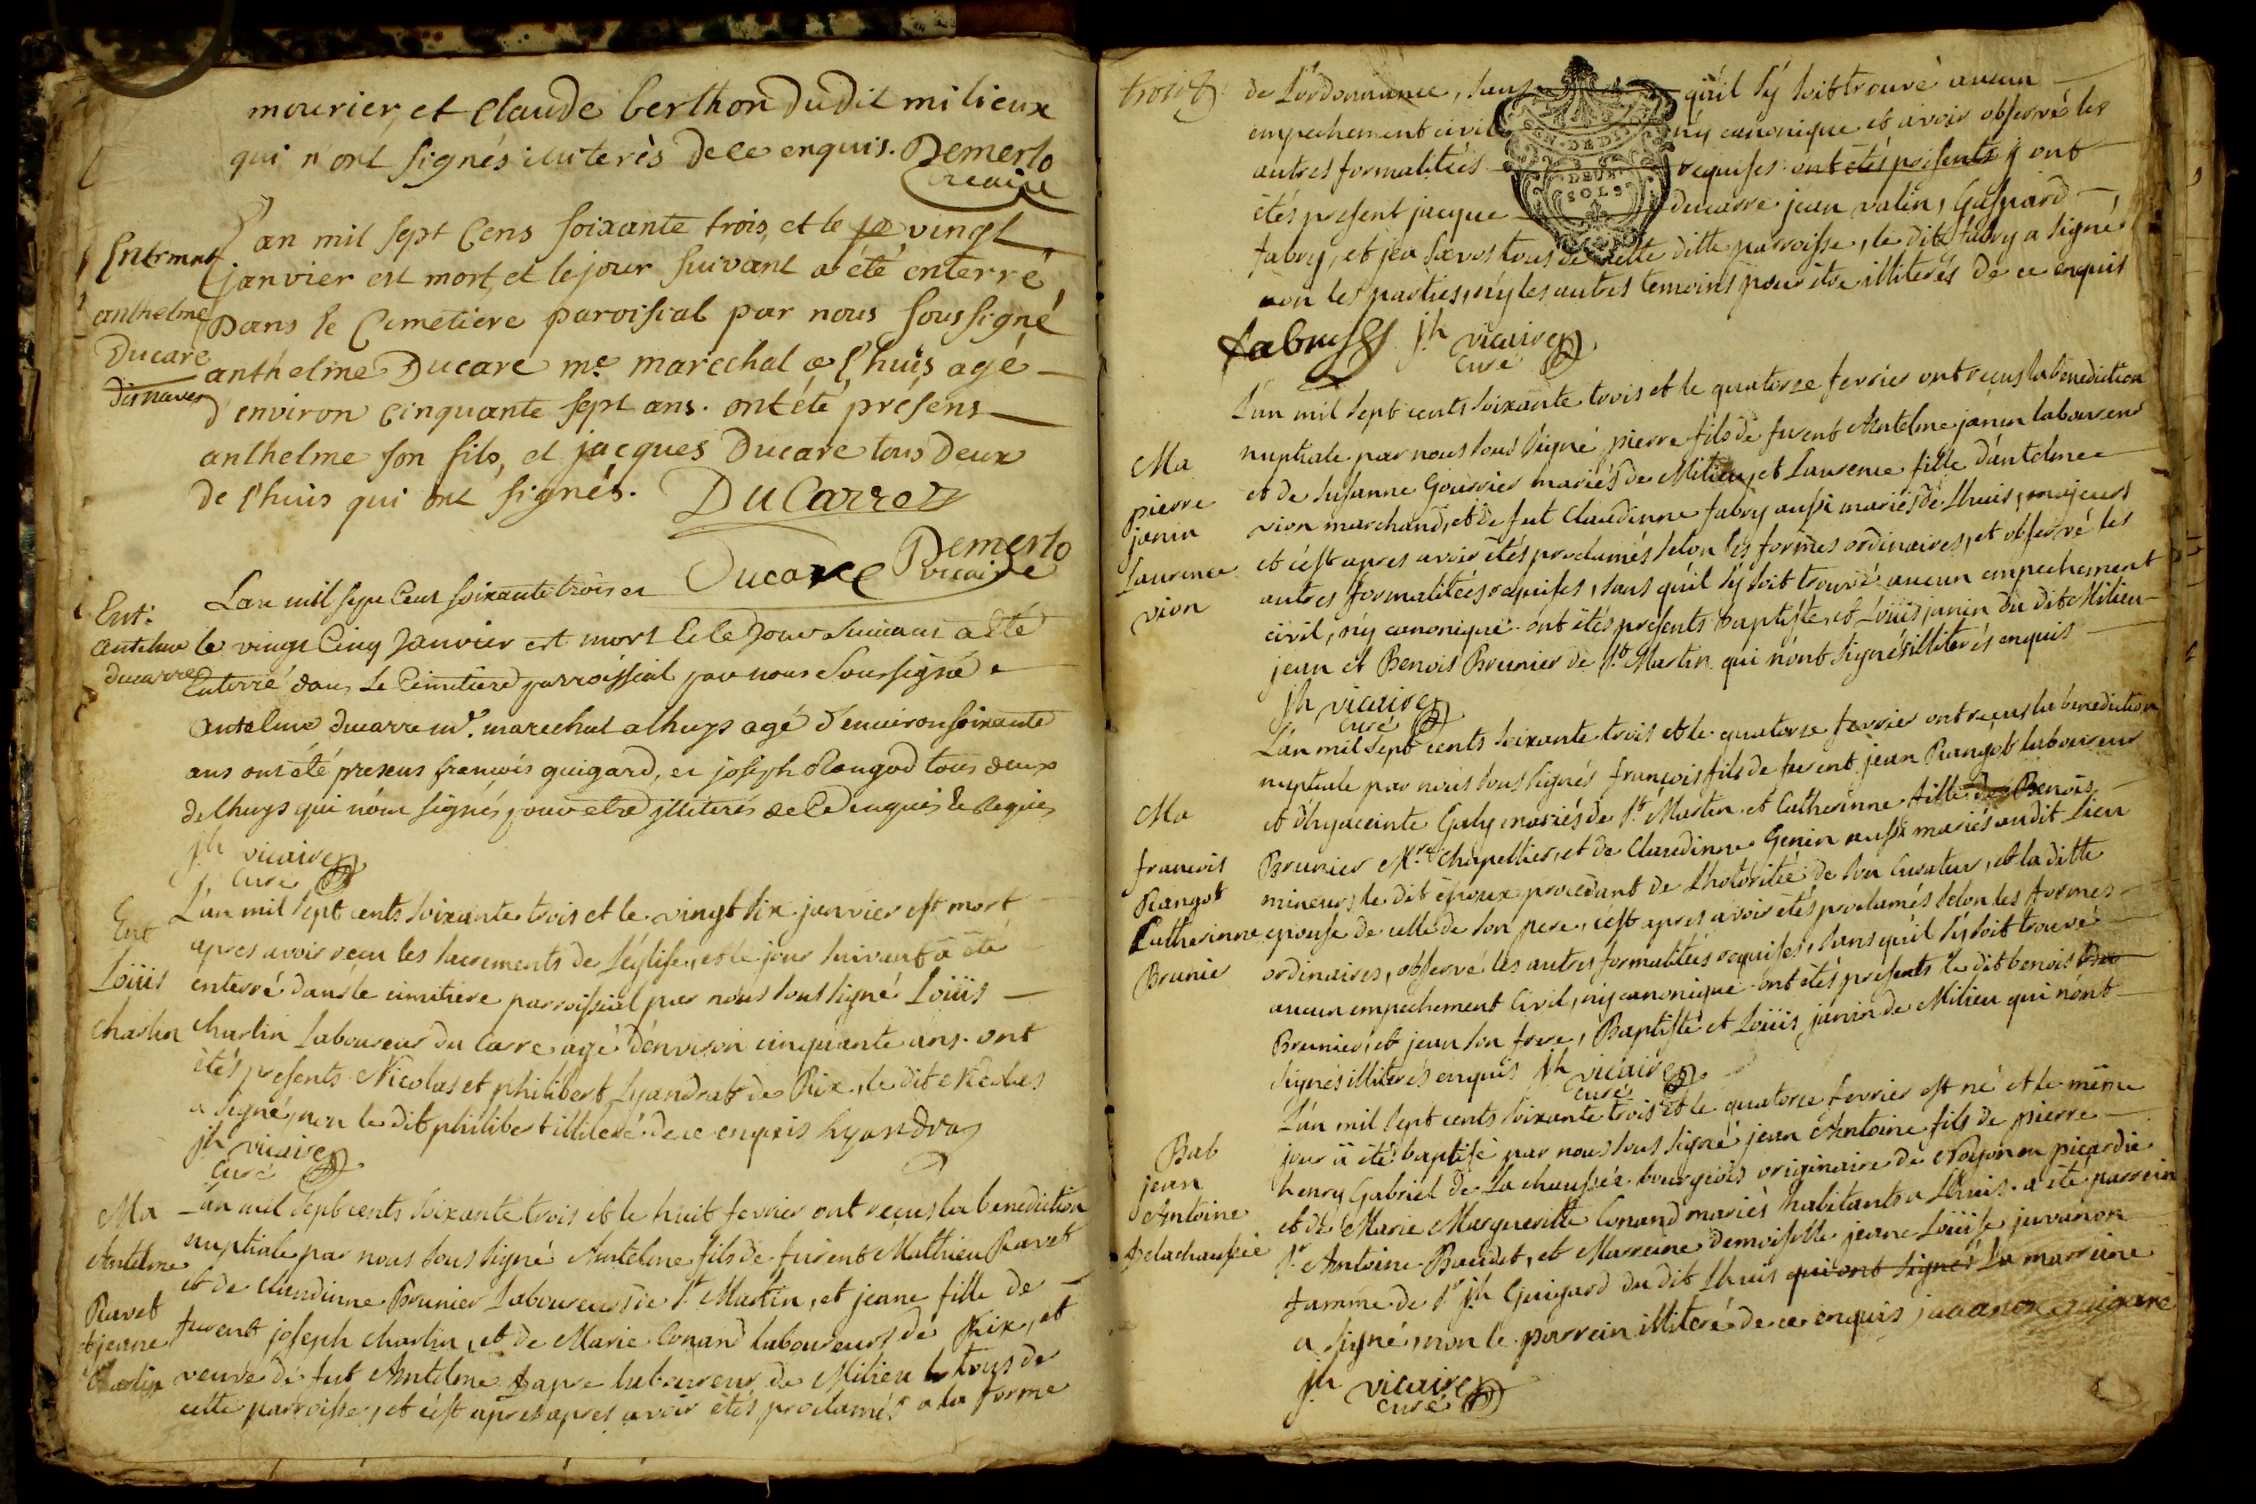 mourier, et Claude berthon dudit milieux
qui n'ont signés illiterès de ce enquis. Demerlo
vicaire
Entermnt
anthelme
Ducare
L'an mil sept Cens soixante trois, et le vingt
janvier est mort, et le jour suivant a été enterré
Dans le Cimetiere paroissial par nous soussigné
anthelme Ducare me marechal a l'huis agé
d'environ cinquante sept ans. ont été présens
anthelme son fils, et jacques Ducare tous deux
de l'huis qui ont signés. DuCarre
Ducare Demerlo
vicaire
Ent:
antelme
ducarre
Lan mil sept Cent soixante trois et
le vingt Cinq Janvier est mort et le Jour suivant a été
Enterré dans le Cimetiere parroissial par nous Soussigné
antelme ducarre mr. marechal a lhuys agé d'environ soixante
ans ont été presens francois guigard, et joseph Rangod tous deux
de lhuys qui n'ont signés pour etre illiterés de Ce enquis et Requis
jh vicaire
curé
Ent
Loüis
Charlin
L'an mil sept cents soixante trois et le vingt six janvier est mort
apres avoir reçu les sacrements de l'église, et le jour suivant a été
enterré dans le cimitiere parroissial par nous sous signé Loüis
Charlin Laboureur du Carre agé d'environ cinquante ans. ont
étés presents Nicolas et philibert Lyandrat de Rix, le dit Nicolas
a signé, non le dit philibert illiteré de ce enquis Lyandra
jh vicaire
Curé
Ma
Antelme
Ravet
et jeane
Charlin
L'an mil sept cents soixante trois et le huit fevrier ont reçus la benediction
nuptiale par nous sous signé Antelme fils de furent Mathieu Ravet
et de claudinne Brunier Laboureurs de St Martin, et jeane fille de
furent joseph charlin, et de Marie Conand laboureurs de Rix, et
veuve de fut Antelme Lapre laboureur de Milieu tous de
cette parroisse, et c'est apres apres avoir étés proclamés a la forme
trois
de l'ordonnance, sans qu'il s'y soit trouvé aucun
empechement civil n'y canonique et avoir observé les
autres formalitées requises ont étés presents y ont
étés present jacque ducarre jean valin, Gaspard
fabry, et jea tous de cette ditte parroisse, le dit fabry a signé
non les parties, n'y les autres temoins pour être illiterés de ce enquis
DEUX
SOLS
fabry jh vicaire
Curé
Ma
pierre
janin
Laurence
vion
L'an mil sept cents soixante trois et le quatorze fevrier ont reçus la benediction
nuptiale par nous sous signé pierre fils de furent Antelme janin laboureur
et de Susanne Gourrier mariés de Milieu, et Laurence fille d'antelme
vion marchand, et de fut Claudinne fabry aussi mariés de Lhuis, majeurs
et c'est apres avoir étés proclamés selon les formes ordinaires, et observé les
autres formalitées requises, sans qu'il s'y soit trouvé aucun empechement
civil, n'y canonique. ont étés presents baptiste, et Loüis janin du dit Milieu
jean et Benois Brunier de St Martin qui n'ont signés illiterés enquis
jh vicaire
Curé
Ma
francois
Rangot
Catherinne
Brunie
L'an mil sept cents soixante trois et le quatorze fevrier ont reçus la benediction
nuptiale par nous sous signés françois fils de furent jean Rangot laboureur
et d'hyacinte Galy mariés de St Martin et Catherinne fille de Benois
Brunier Mre Chapellier, et de Claudinne Genin aussi mariés au dit Lieu
mineurs, le dit époux procedant de l'hotoritée de son Curateur, et la ditte
epouse de celle de son pere, c'est apres avoir étés proclamés selon les formes
ordinaires, observé les autres formalitées requises, sans qu'il s'y soit trouvé
aucun empechement civil, n'y canonique. ont étés presents le dit benois
Brunier, et jean son frere, Baptiste et Loüis janin de Milieu qui n'ont
signés illiterés enquis jh vicaire
curé
Bab
jean
Antoine
Delachaussée
L'an mil sept cents soixante trois et le quatorze fevrier est né et le même
jour a été baptisé par nous sous signé jean Antoine fils de pierre
henry Gabriel de La chaussée bourgeois originaire de Noyon en picardie
et de Marie Marguerithe Conand mariés habitants a Lhuis. a été parrein
Sr Antoine Baudet, et Marreine demoiselle jeane Loüise juvanon
famme de Sr jh Guigard du dit Lhuis qui ont signés La marreine
a signé, non le parrein illiteré de ce enquis juvanon guigard
jh vicaire
curé